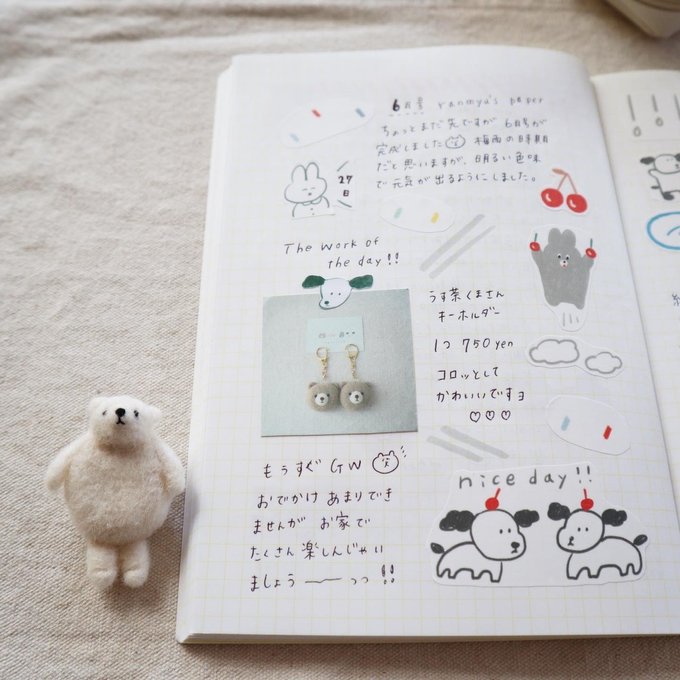 6月号 ranmyu's paper
ちょっとまだ先ですが 6月号が
完成しました 梅雨の時期
だと思いますが、明るい色味
で元気が出るようにしました。
27
日
The work of
the day!!
うす茶くまさん
キーホルダー
1つ 750yen
コロッとして
かわいいですヨ
♡♡♡
もうすぐ GW
おでかけ あまりでき
ませんが お家で
たくさん 楽しんじゃい
ましょう ーーっっ !!
nice day!!